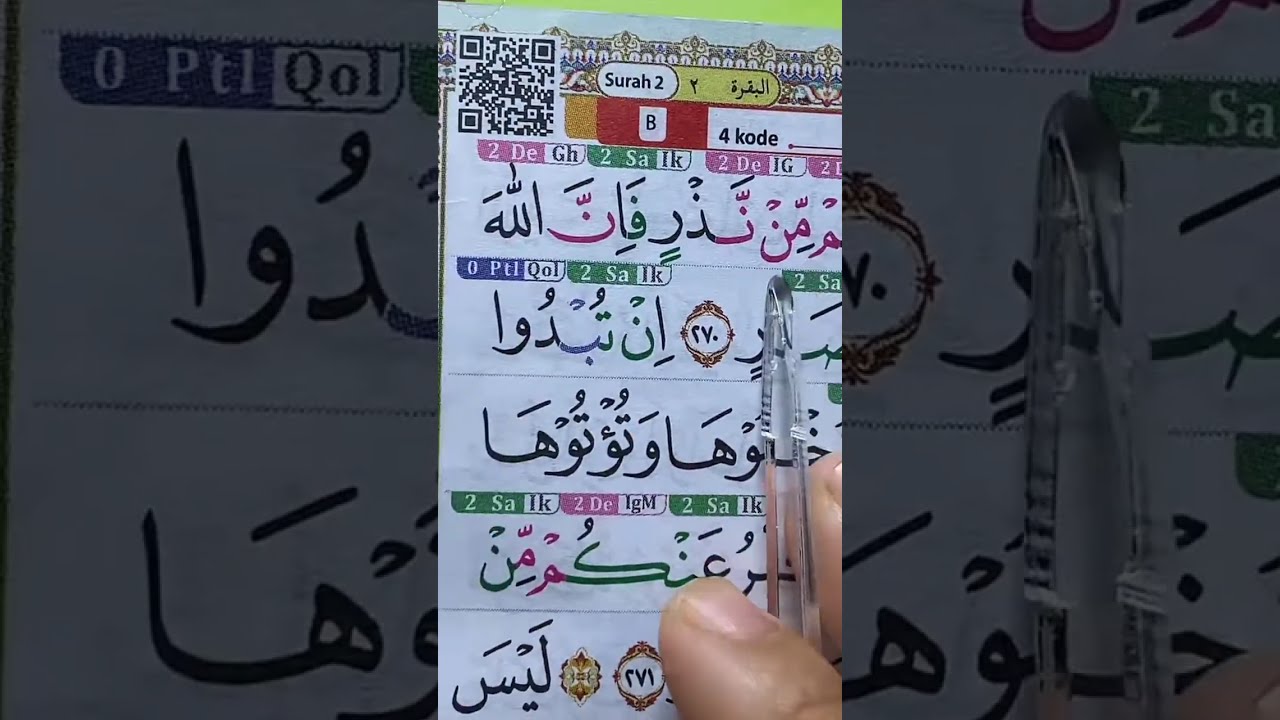 Surah 2 ٢ البقرة
B
4 kode
2 De Gh 2 Sa Ik 2 De IG
مِّنْ نَّذْرٍ فَاِنَّ اللّٰهَ
0 Ptl Qol 2 Sa Ik 2 Sa
٢٧٠ اِنْ تُبْدُوا
وَتُؤْتُوْهَا
2 Sa Ik 2 De IgM 2 Sa Ik
عَنْكُمْ مِّنْ
٢٧١ لَيْسَ